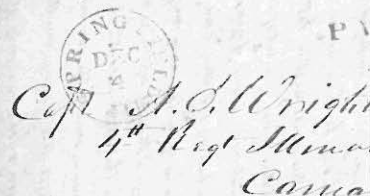 SPRINGFIELD
DEC
P
Capt A. S. Wright
4th Regt Illinoi
Camar